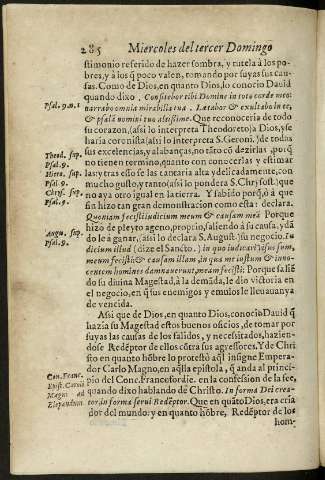 285 Miercoles del tercer Domingo
stimonio referido de hazer sombra, y tutela à los po-
bres, y à los q̃ poco valen, tomando por suyas sus cau-
sas. Como de Dios, en quanto Dios, lo conocio David
Psal. 9. n. 1
quando dixo. Confitebor tibi Domine in toto corde meo:
narrabo omnia mirabilia tua. Lætabor & exultabo in te,
& psalã nomini tuo altissime. Que reconoceria de todo
su coraçon, (assi lo interpreta Theodoreto) a Dios, y se
haria coronista (assi lo interpreta S. Geroni.) de todas
Theod. sup.
Psal. 9.
sus excelencias, y alabanças, no tãto cõ dezirlas, porq̃
no tienen termino, quanto con conocerlas y estimar
Hiero. sup.
Psal. 9.
las: y tras esso se las cantaria alta, y delicadamente, con
mucho gusto, y tanto (assi lo pondera S. Chrysost.) que
Chrys. sup.
Psal. 9.
no aya otro igual en la tierra. Y sabido porq̃, ò à que
fin hizo tan gran demonstracion como esta: declara.
Quoniam fecisti iudicium meum & causam meã. Porque
hizo de pleyto ageno, proprio, saliendo à su causa, y dã
Augu. sup.
Psal. 9.
dole à ganar, (assi lo declara S. August.) su negocio. Iu
dicium illud (dize el Sancto.) in quo iudicatus sum,
meum fecisti & causam illam, in qua me iustum & inno-
centem homines damnaverunt, meam fecisti. Porque saliẽ
do su divina Magestad, à la demãda, le dio victoria en
el negocio, en q̃ sus enemigos y emulos le llevauan ya
de vencida.
Assi que de Dios, en quanto Dios, conocio Dauid q̃
hazia su Magestad estos buenos oficios, de tomar por
suyas las causas de los falidos, y necessitados, hazien-
dose Redẽptor de ellos cõtra sus agressores. Y de Chri
sto en quanto hõbre lo protestò aql̃ insigne Empera-
Can. Franc.
dor Carlo Magno, en aq̃lla epistola, q̃ anda al princi-
Epist. Caroli
pio del Conc. Francofordie. en la confession de la fee,
Magni ad
quando dixo hablando dẽ Christo. In forma Dei crea-
Elepandum.
tor, in forma serui Redẽptor. Que en quãto Dios, era cria
dor del mundo: y en quanto hõbre, Redẽptor de los
hom-